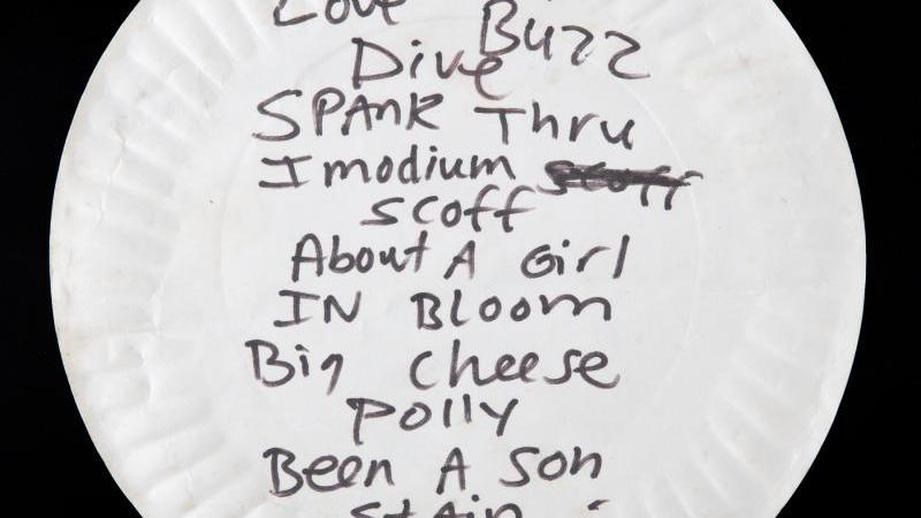 Love Buzz
Dive
SPANK Thru
Imodium scoff
scoff
About A Girl
IN Bloom
Big cheese
polly
Been A Son
stain